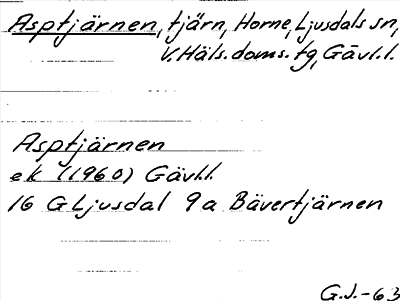 Asptjärnen, tjärn, Horne, Ljusdals sn,
V. Häls. doms. tg, Gävl.l.
Asptjärnen
ek (1960) Gävl.l.
16 G Ljusdal 9a Bävertjärnen
G.J.-63